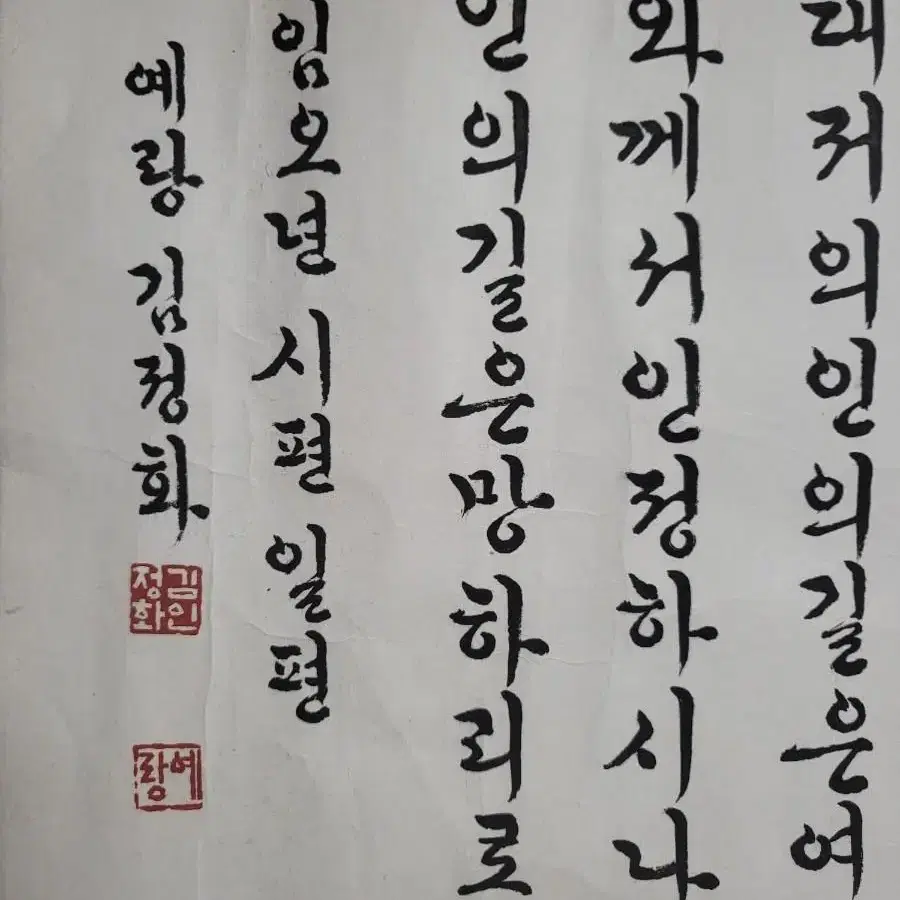 대저의인의길은여
와께서인정하시나
인의길은망하리로
임오년 시편 일편
예랑 김정화
김인
정화
예랑